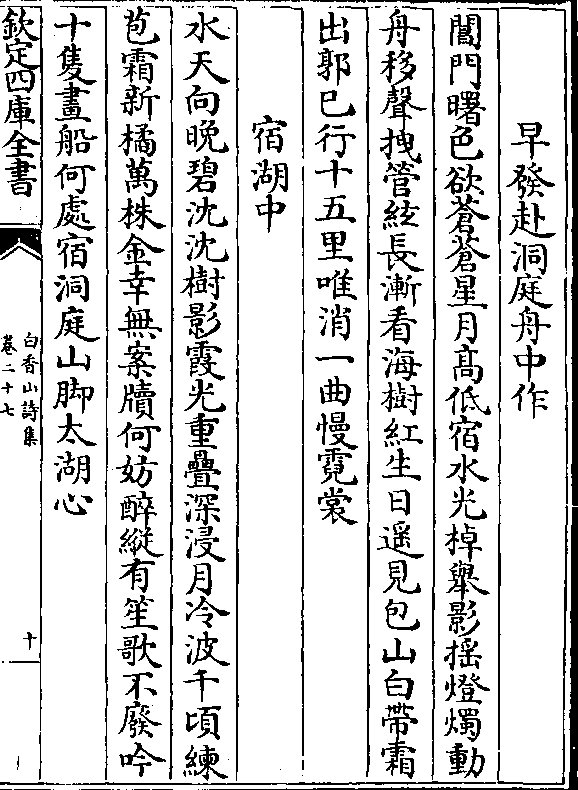 早發赴洞庭舟中作
閶門曙色欲蒼蒼星月髙低宿水光棹舉影揺燈燭動
舟移聲拽管絃長漸看海樹紅生日遥見包山白帶霜
出郭已行十五里唯消一曲慢霓裳
宿湖中
水天向晩碧沈沈樹影霞光重疊深浸月冷波千頃練
苞霜新橘萬株金幸無案牘何妨醉縦有笙歌不廢吟
十隻畫船何處宿洞庭山脚太湖心
欽定四庫全書
白香山詩集
卷二十七
十